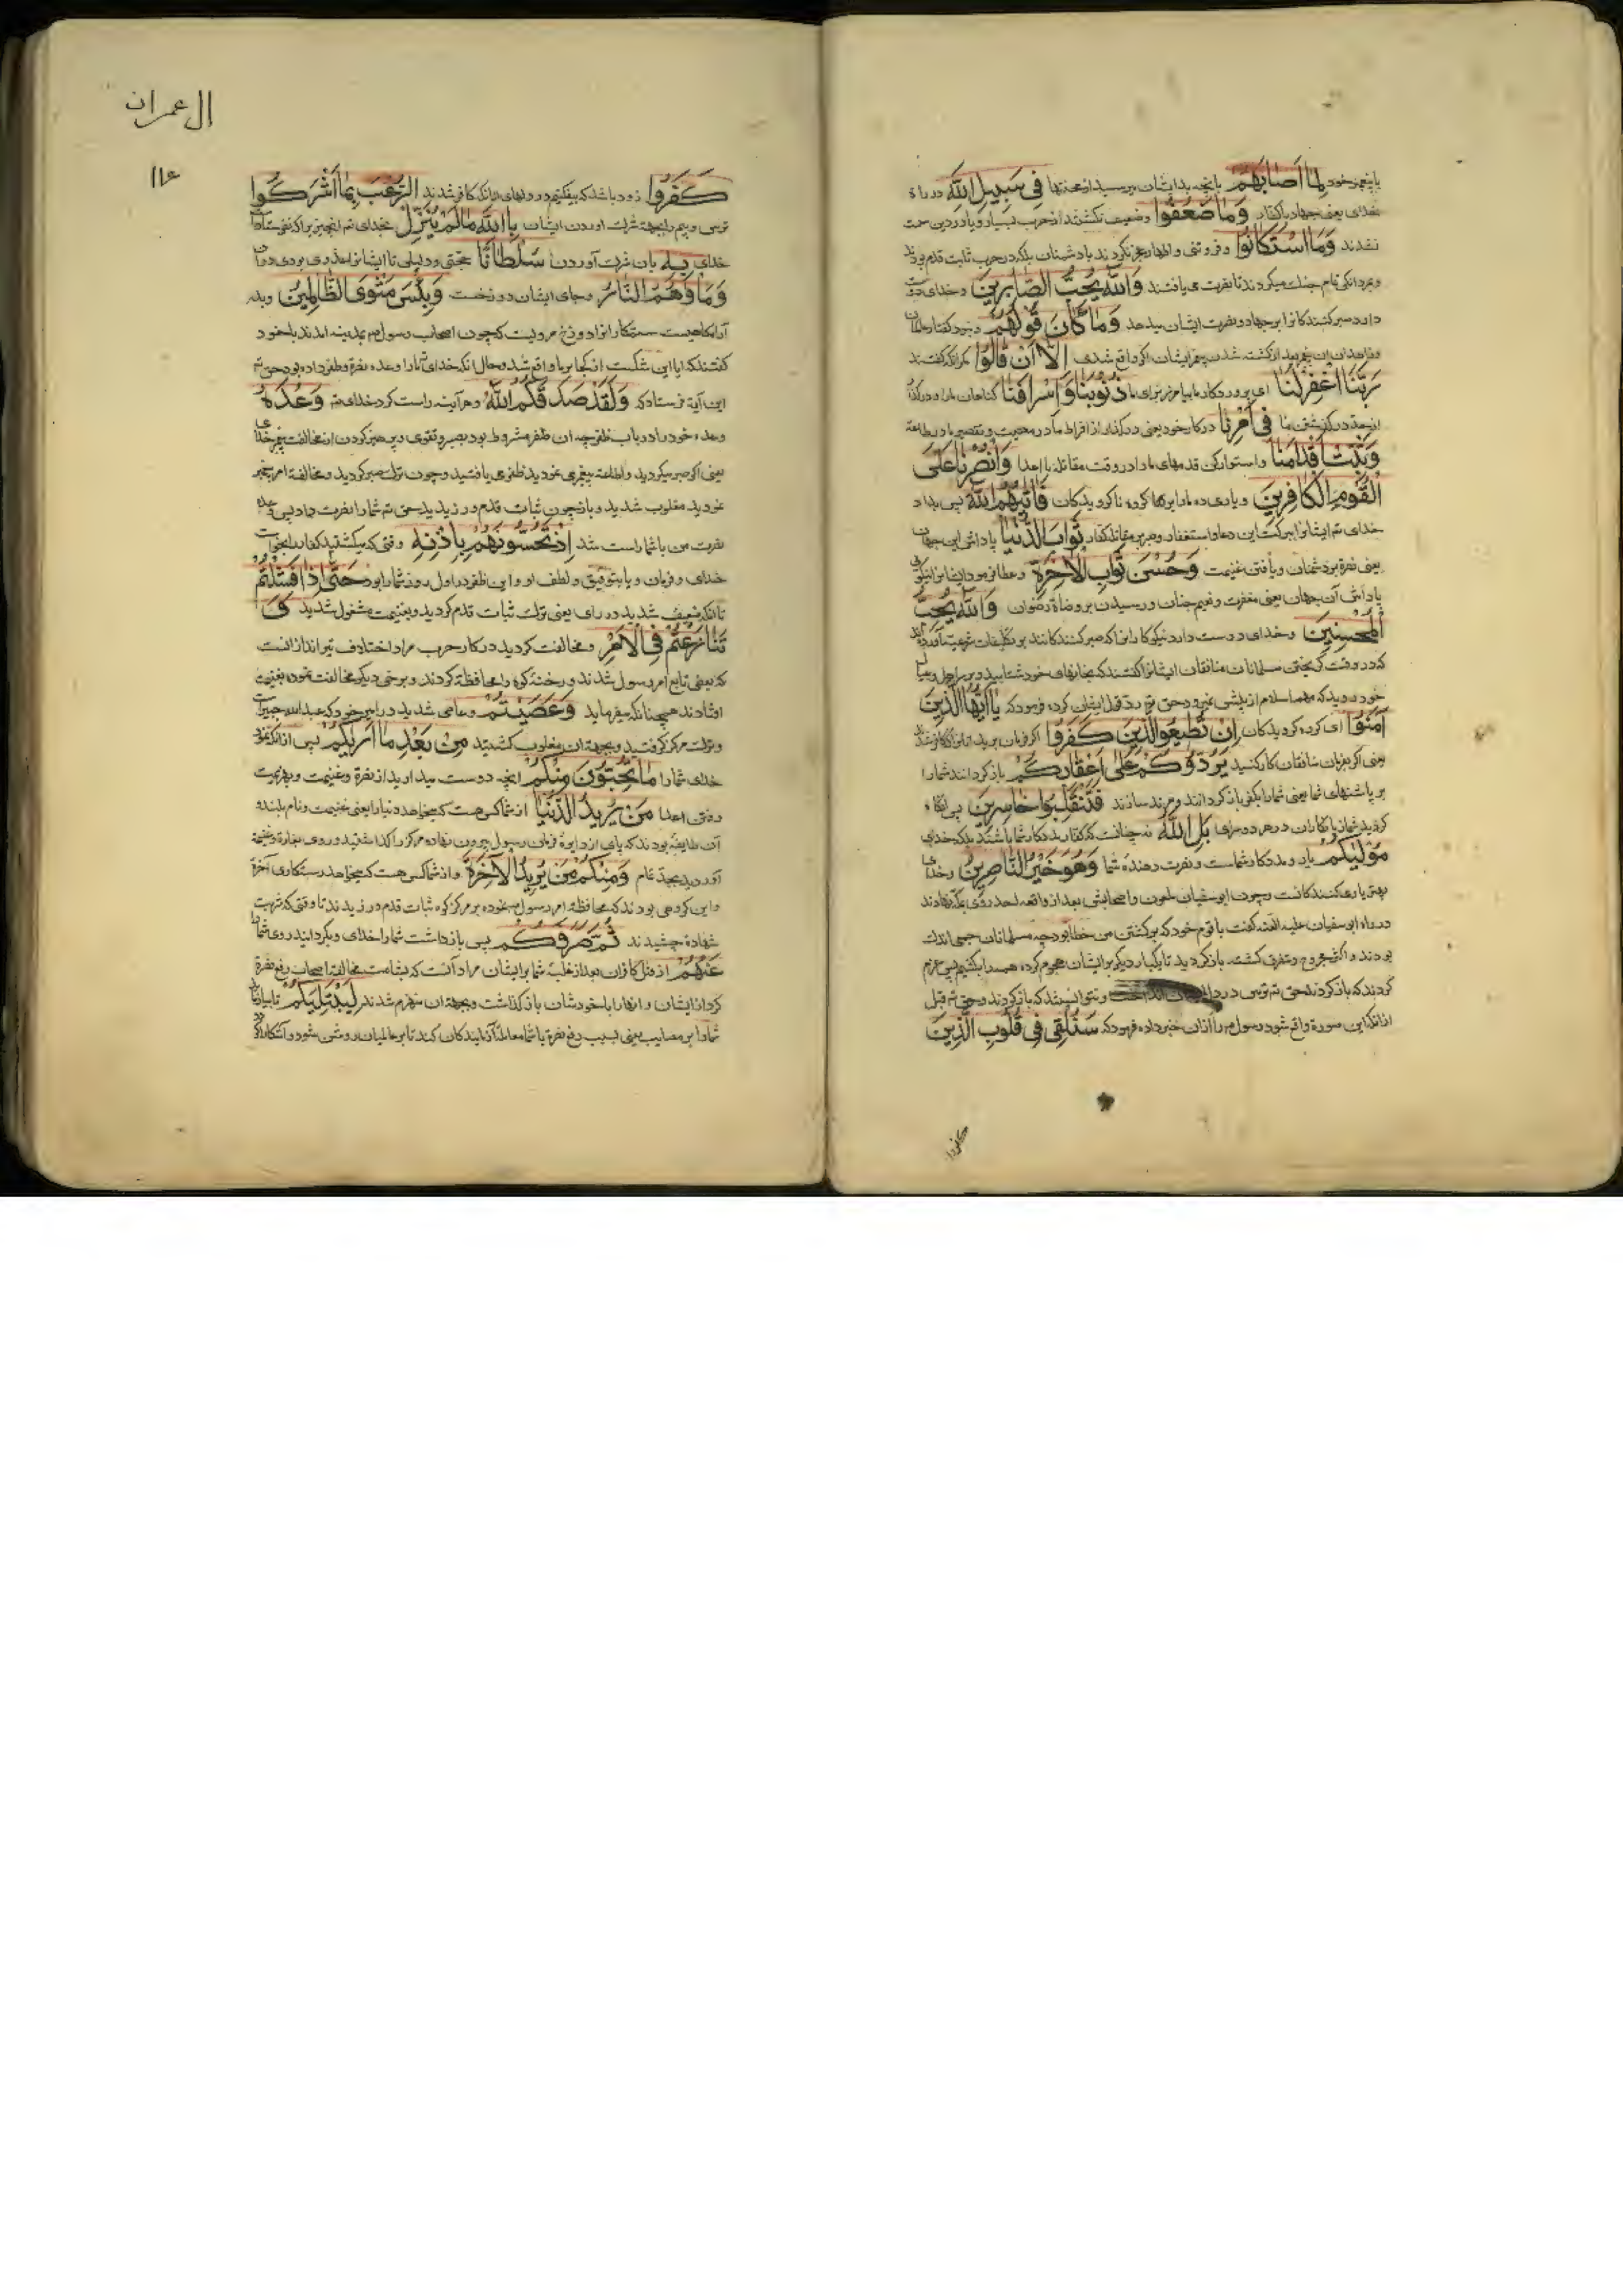 با پیغمبر خود لِمَا أَصَابَهُمْ بآنچه بدایشان میرسید از محنتها فِی سَبِیلِ اللَّهِ در راه
خدای یعنی جهاد با کفار وَمَا ضَعُفُوا وضعیف نکشتند از حرب بسیار و یا در دین سست
نشدند وَمَا اسْتَكَانُوا وفروتنی واظهار عجز نکردند با دشمنان بلکه در حرب ثابت قدم بودند
ومردانکی تمام جنك میکردند تا نصرت می یافتند وَاللَّهُ یُحِبُّ الصَّابِرِینَ وخدای دوست
دارد صبر کنندکانرا بر جهاد ونصرت ایشان میدهد وَمَا كَانَ قَوْلَهُمْ ونبود کفتار
إِلَّا أَنْ قَالُوا مکر آنکه کفتند
رَبَّنَا اغْفِرْ لَنَا ای پروردکار ما بیامرز برای ما ذُنُوبَنَا وَإِسْرَافَنَا کناهان ما را ودر
از حد درکذشتن ما فِی أَمْرِنَا در کار خود یعنی درکذار از افراط ما در معصیت وتقصیر ما در طاعة
وَثَبِّتْ أَقْدَامَنَا واستوار کن قدمهای ما را در وقت مقاتله با اعدا وَانْصُرْنَا عَلَى
الْقَوْمِ الْكَافِرِینَ ویاری ده ما را بر کروه ناکرویدکان فَآتَاهُمُ اللَّهُ پس بداد
خدای تع ایشانرا ببرکت این دعا واستغفار وصبر بر مقاتله کفار ثَوَابَ الدُّنْیَا پاداش این جهان
یعنی نصرة بر دشمنان ویافتن غنیمت وَحُسْنَ ثَوَابِ الْآخِرَةِ وعطا فرمود ایشانرا نیکوی
پاداش آن جهان یعنی مغفرت ونعیم جنان ورسیدن بروضات رضوان وَاللَّهُ یُحِبُّ
الْمُحْسِنِینَ وخدای دوست دارد نیکوکارانرا که صبر کنندکانند بر تکلیفات شرعیه آورده اند
که در وقت کریختن مسلمانان منافقان ایشانرا کفتند که بخانهای خود شتابید
یَا أَیُّهَا الَّذِینَ
آمَنُوا ای کروه کرویدکان إِنْ تُطِیعُوا الَّذِینَ كَفَرُوا اکر فرمان برید آنانرا که کافر شدند
یعنی اکر بفرمان منافقان کار کنید یَرُدُّوكُمْ عَلَى أَعْقَابِكُمْ باز کردانند شما را
بر پاشنهای شما یعنی شما را بکفر باز کردانند ومرتد سازند فَتَنْقَلِبُوا خَاسِرِینَ پس آنکاه
کردید شما زیانکاران در هر دو سرای بَلِ اللَّهُ نه چنانست که کفار مددکار شما باشند بلکه خدای
مَوْلَاكُمْ یار ومددکار شماست ونصرت دهندهٔ شما وَهُوَ خَیْرُ النَّاصِرِینَ وخدای
بهتر یاری کنندکانست وچون ابو سفیان ملعون واصحابش بعد از واقعهٔ احد روی بمکه نهادند
در راه ابو سفیان علیه اللعنه کفت با قوم خود که برکشتن من خطا بود چه مسلمانان جمعی اندك
بودند واکثر مجروح ومتفرق کشته باز کردید تا یکبار دیکر بر ایشان هجوم کرده همه را بکشیم پس عزم
کردند که باز کردند حق تع ترس در دل ایشان انداخت ونتوانستند که باز کردند وحق تع قبل
از آنکه این صورة واقع شود رسول م را از آن خبر داده فرمود که سَنُلْقِی فِی قُلُوبِ الَّذِینَ
کفروا
ال عمران
١١٤
كَفَرُوا زود باشد که بیفکنیم در دلهای آنانکه کافر شدند الرُّعْبَ بِمَا أَشْرَكُوا
ترس وبیم را بجهة شرك آوردن ایشان بِاللَّهِ مَا لَمْ یُنَزِّلْ بخدای تع آنچیز را که نفرستاد
خدای بِهِ بآن شرك آوردن سُلْطَانًا حجتی ودلیلی تا ایشانرا عذری بودی در آن
وَمَأْوَاهُمُ النَّارُ وجای ایشان دوزخست وَبِئْسَ مَثْوَى الظَّالِمِینَ وبد
آرامکاهیست ستمکارانرا دوزخ مرویست که چون اصحاب رسول م بمدینه آمدند با خود
کفتند که آیا این شکست از کجا بر ما واقع شد وحال آنکه خدای تع ما را وعده نصرة وظفر داده بود حق تع
این آیة فرستاد که وَلَقَدْ صَدَقَكُمُ اللَّهُ وهر آینه راست کرد خدای تع وَعْدَهُ
وعدهٔ خود را در باب ظفر چه آن ظفر مشروط بود بصبر وتقوی وپرهیز کردن از مخالفت پیغمبر خدای
یعنی اکر صبر میکردید واطاعة پیغمبر می نمودید ظفر می یافتید وچون ترك صبر کردید ومخالفة امر پیغمبر
نمودید مغلوب شدید وباز چون ثبات قدم ورزیدید حق تع شما را نصرت داد پس وعده
نصرت من با شما راست شد إِذْ تَحُسُّونَهُمْ بِإِذْنِهِ وقتی که میکشتید کفار را بخواست
خدای وفرمان ویا بتوفیق ولطف او واین ظفر در اول روز شما را بود حَتَّى إِذَا فَشِلْتُمْ
تا آنکه ضعیف شدید در رای یعنی ترك ثبات قدم کردید وبغنیمت مشغول شدید وَ
تَنَازَعْتُمْ فِی الْأَمْرِ ومخالفت کردید در کار حرب مراد اختلاف تیراندازانست
که بعضی تابع امر رسول شدند ورخنهٔ کوه را محافظة کردند وبرخی دیکر مخالفت نموده بغنیمت
افتادند همچنانکه میفرماید وَعَصَیْتُمْ وعاصی شدید در امیر خود که عبد الله جبیر است
وترك مرکز کرفتید وبجهة آن مغلوب کشتید مِنْ بَعْدِ مَا أَرَاكُمْ پس از آنکه نمود
خدای شما را مَا تُحِبُّونَ مِنْكُمْ آنچه دوست میدارید از نصرة وغنیمت وهزیمت
وقتل اعدا مَنْ یُرِیدُ الدُّنْیَا از شما کس هست که میخواهد دنیا را یعنی غنیمت ونام بلند و
آن طایفه بودند که پای از دایرهٔ فرمان رسول بیرون نهاده مرکز را کذاشتید وروی بغارة وغنیمة
آوردید بجد تمام وَمِنْكُمْ مَنْ یُرِیدُ الْآخِرَةَ واز شما کس هست که میخواهد رستکاری آخرة
واین کروهی بودند که محافظة امر رسول م نموده بر مرکز کوه ثبات قدم ورزیدند تا وقتی که شربت
شهادة چشیدند ثُمَّ صَرَفَكُمْ پس بازداشت شما را خدای وبکردانید روی شما
عَنْهُمْ از قتل کافران بعد از غلبهٔ شما بر ایشان مراد آنست که بشامت مخالفت اصحاب رفع نصرة
کرد از ایشان وآنها را با خودشان باز کذاشت وبجهة آن منهزم شدند لِیَبْتَلِیَكُمْ تا بیازماید
شما را بر مصایب یعنی بسبب رفع نصرة با شما معاملهٔ آزمایندکان کند تا بر عالمیان روشن شود وآشکارا